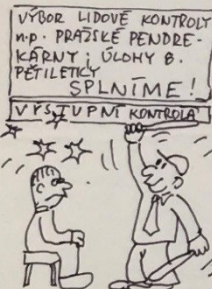 VÝBOR LIDOVÉ KONTROLY
n.p. PRAŽSKÉ PENDRE-
KÁRNY: ÚLOHY 8.
PĚTILETKY
SPLNÍME!
VÝSTUPNÍ KONTROLA